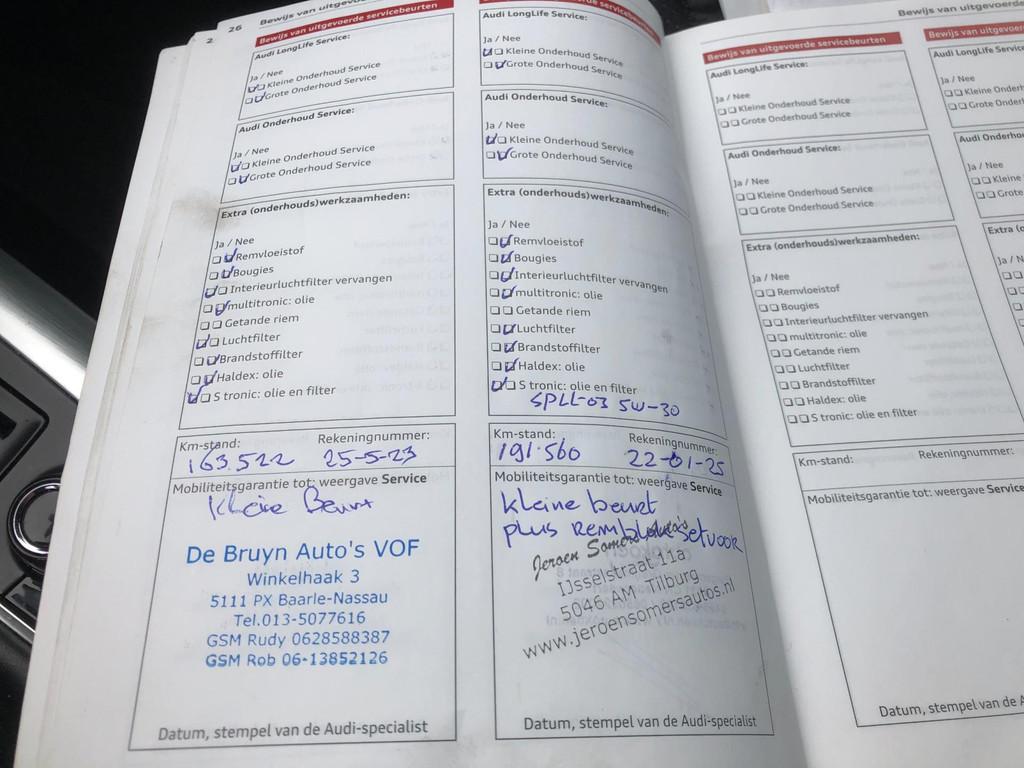 2 26 Bewijs van uitgevoe
Bewijs van uitgevoerde servicebeurten
Audi LongLife Service:
Ja / Nee
Kleine Onderhoud Service
Grote Onderhoud Service
Audi Onderhoud Service:
Ja / Nee
Kleine Onderhoud Service
Grote Onderhoud Service
Extra (onderhouds)werkzaamheden:
Ja / Nee
Remvloeistof
Bougies
Interieurluchtfilter vervangen
multitronic: olie
Getande riem
Luchtfilter
Brandstoffilter
Haldex: olie
S tronic: olie en filter
Km-stand: Rekeningnummer:
163.522 25-5-23
Mobiliteitsgarantie tot: weergave Service
Kleine Beurt
De Bruyn Auto's VOF
Winkelhaak 3
5111 PX Baarle-Nassau
Tel.013-5077616
GSM Rudy 0628588387
GSM Rob 06-13852126
Datum, stempel van de Audi-specialist
de servicebeurten
Audi LongLife Service:
Ja / Nee
Kleine Onderhoud Service
Grote Onderhoud Service
Audi Onderhoud Service:
Ja / Nee
Kleine Onderhoud Service
Grote Onderhoud Service
Extra (onderhouds)werkzaamheden:
Ja / Nee
Remvloeistof
Bougies
Interieurluchtfilter vervangen
multitronic: olie
Getande riem
Luchtfilter
Brandstoffilter
Haldex: olie
S tronic: olie en filter
SPLL-03 5W-30
Km-stand: Rekeningnummer:
191.560 22-01-25
Mobiliteitsgarantie tot: weergave Service
kleine beurt
plus Remblokset voor
Jeroen Somers Autos
IJsselstraat 11a
5046 AM Tilburg
www.jeroensomersautos.nl
Datum, stempel van de Audi-specialist
Bewijs van uitgevoerde servicebeurten
Audi LongLife Service:
Ja / Nee
Kleine Onderhoud Service
Grote Onderhoud Service
Audi Onderhoud Service:
Ja / Nee
Kleine Onderhoud Service
Grote Onderhoud Service
Extra (onderhouds)werkzaamheden:
Ja / Nee
Remvloeistof
Bougies
Interieurluchtfilter vervangen
multitronic: olie
Getande riem
Luchtfilter
Brandstoffilter
Haldex: olie
S tronic: olie en filter
Km-stand: Rekeningnummer:
Mobiliteitsgarantie tot: weergave Service
Datum, stempel van de A
Bewijs van uitgevoerd
Bewijs van uitge
Audi LongLife Servic
Ja / Nee
Kleine Onderh
Grote Onderh
Audi Onderhou
Ja / Nee
Kleine
Grote O
Extra (o
Ja / N